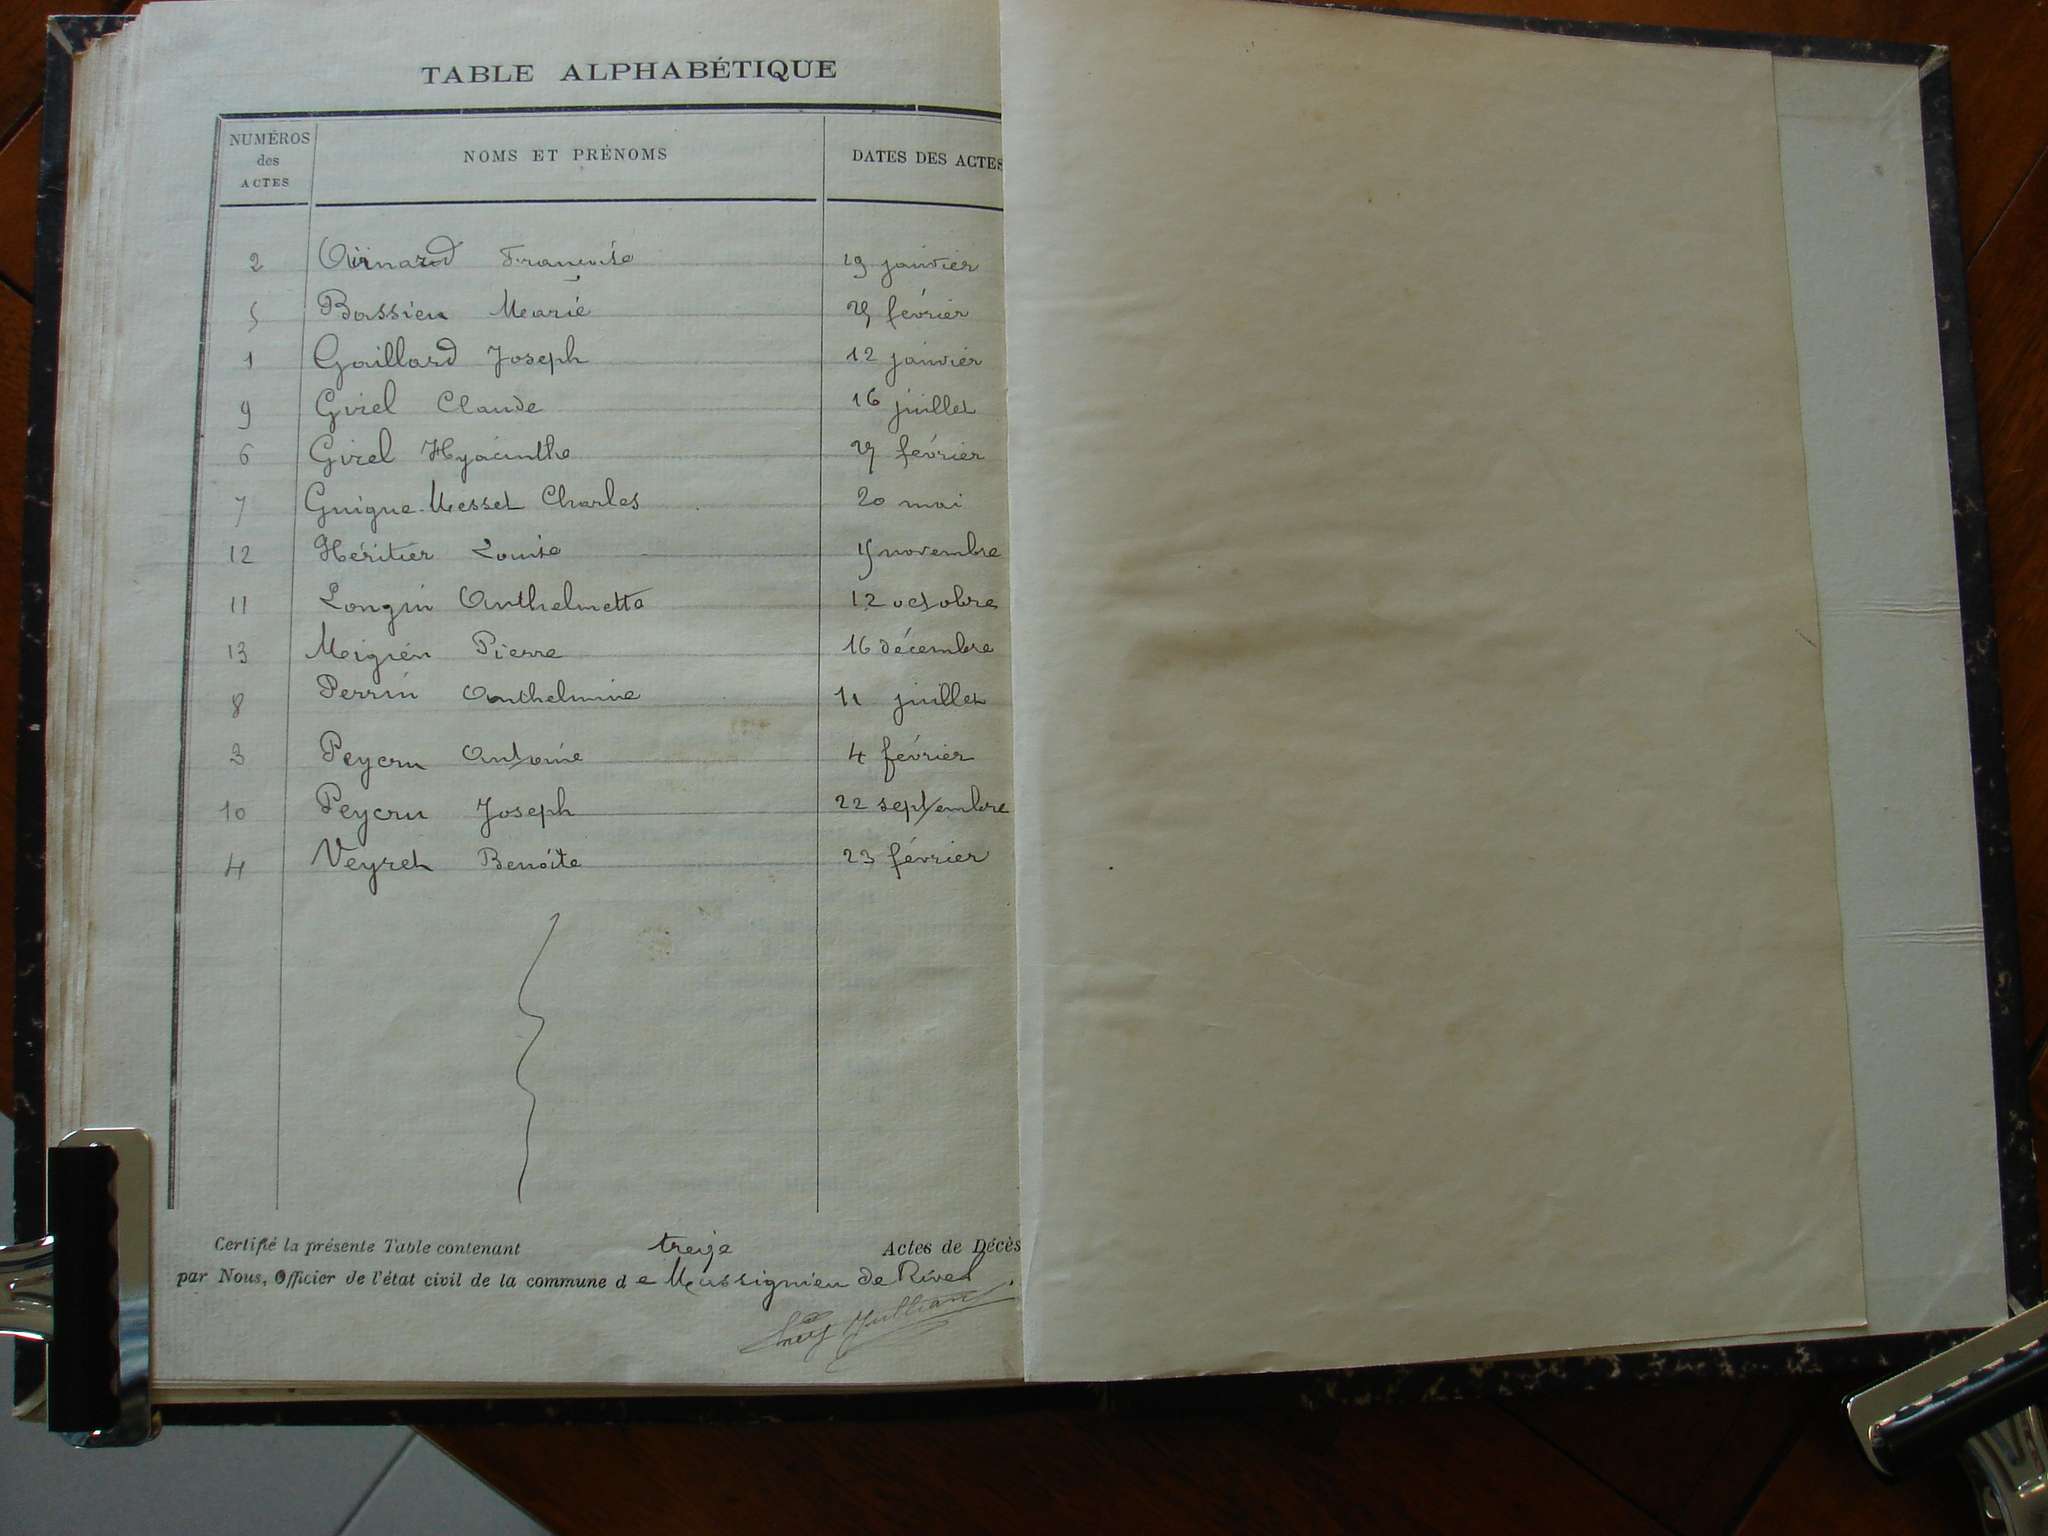 TABLE ALPHABÉTIQUE
NUMÉROS des ACTES NOMS ET PRÉNOMS DATES DES ACTES
2 Françoise 29 janvier
5 Bassieu Marie février
1 Gaillard Joseph 12 janvier
9 Girel Claude 16 juillet
6 Girel Hyacinthe février
7 Guigue-Messet Charles 20 mai
12 Héritier Louise novembre
11 Longin Anthelmette 12 octobre
13 Migien Pierre 16 décembre
8 Perrin Anthelmine 11 juillet
3 Peycru Antoine 4 février
10 Peycru Joseph 22 septembre
4 Veyret Benoîte 23 février
Certifié la présente Table contenant treize Actes de Décès
par Nous, Officier de l'état civil de la commune de Massignieu de Rives.
Jullian